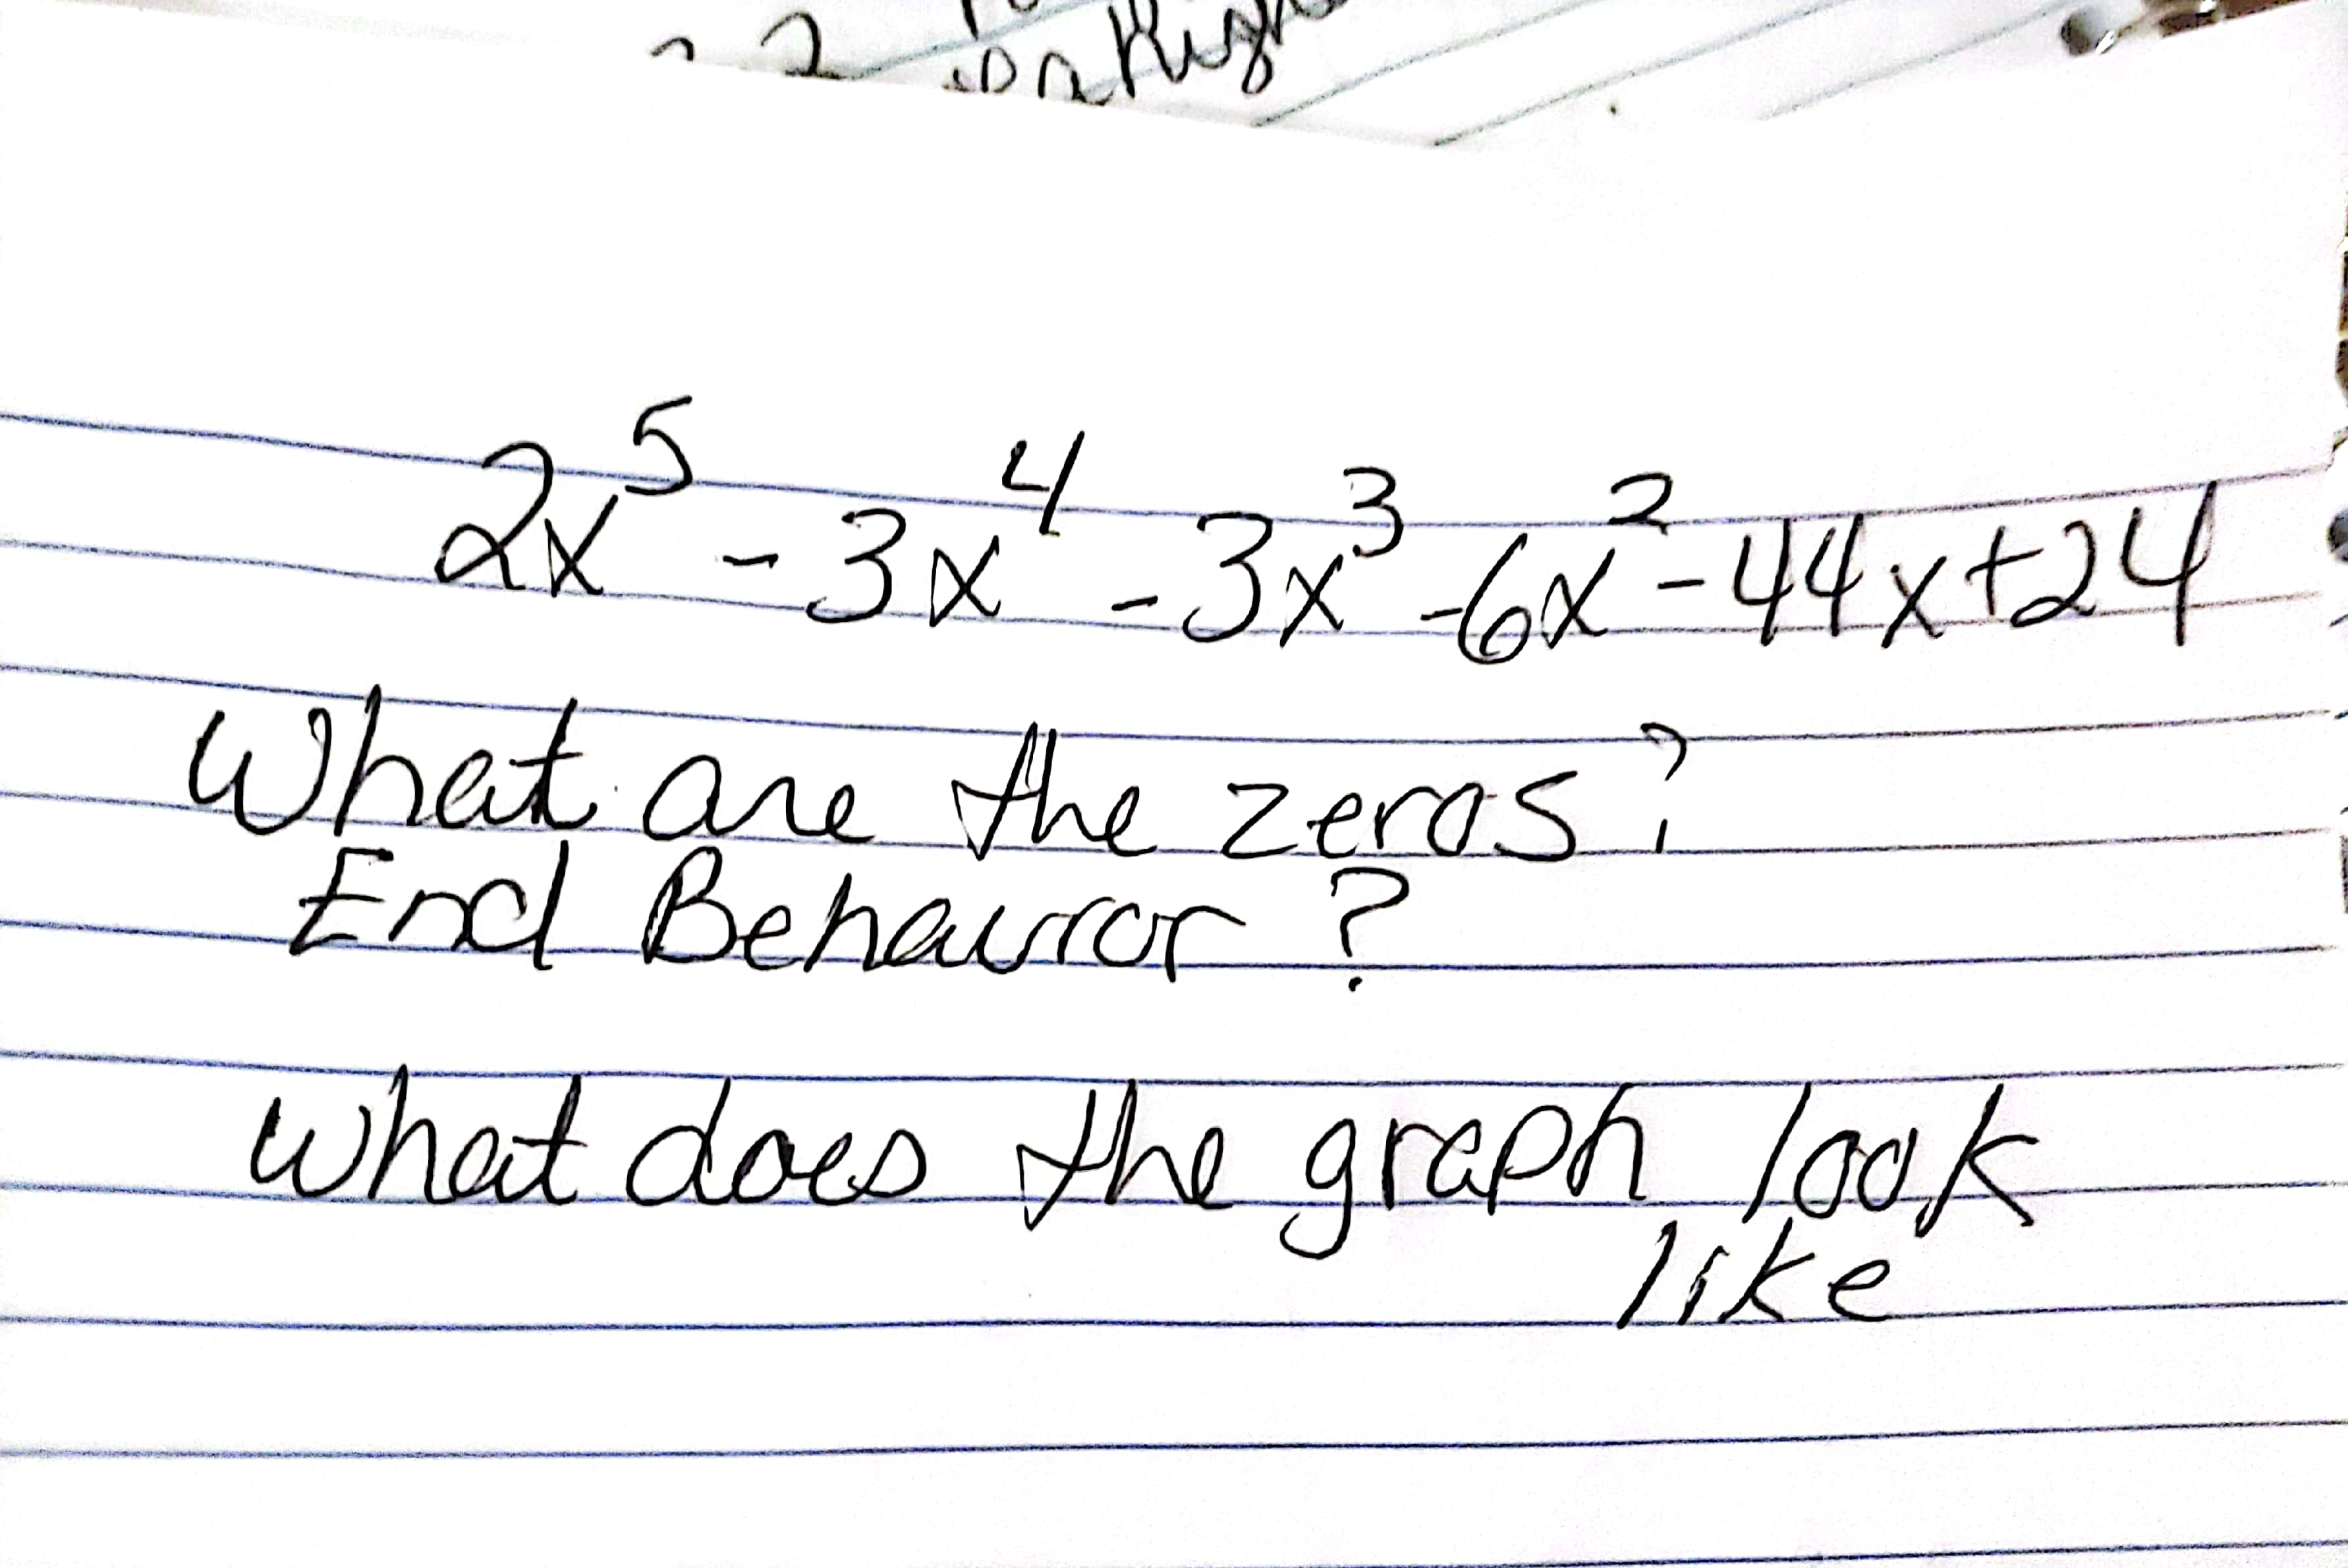 2x⁵ - 3x⁴ - 3x³ - 6x² - 44x + 24
What are the zeros?
End Behavior?
What does the graph look
like